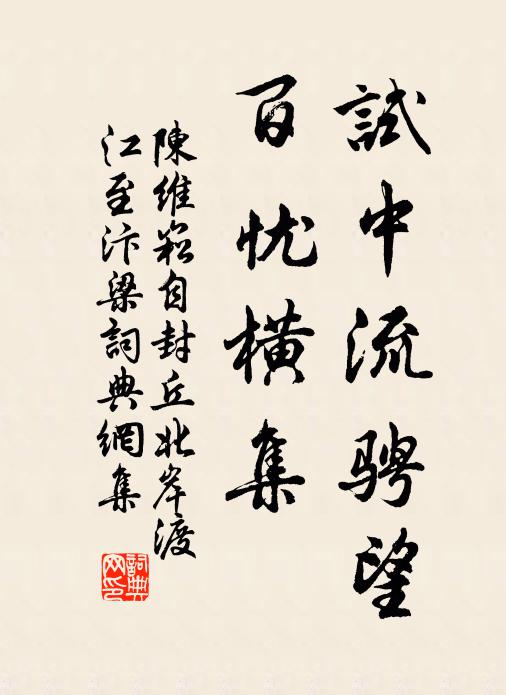 試中流骋望
百忧横集
陳維崧自封丘北岸渡
江至汴梁詞典網集
詞典
网印